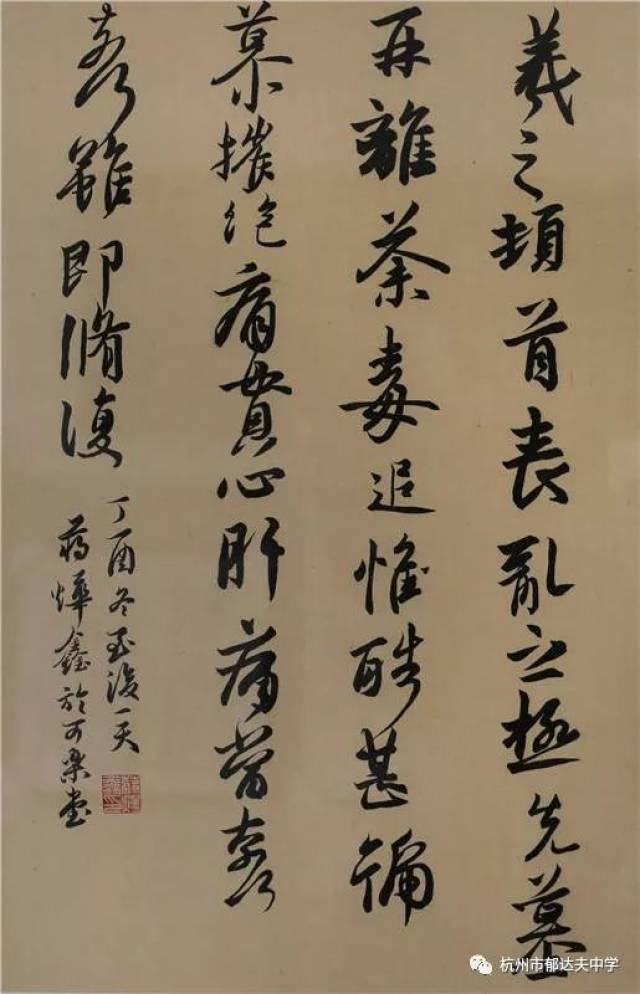 羲之頓首喪亂之極先墓
再離荼毒追惟酷甚號
慕摧絕痛貫心肝痛當奈何
奈何雖即脩復
丁酉冬至後一天
蔣燁鑫於可樂堂
杭州市郁达夫中学